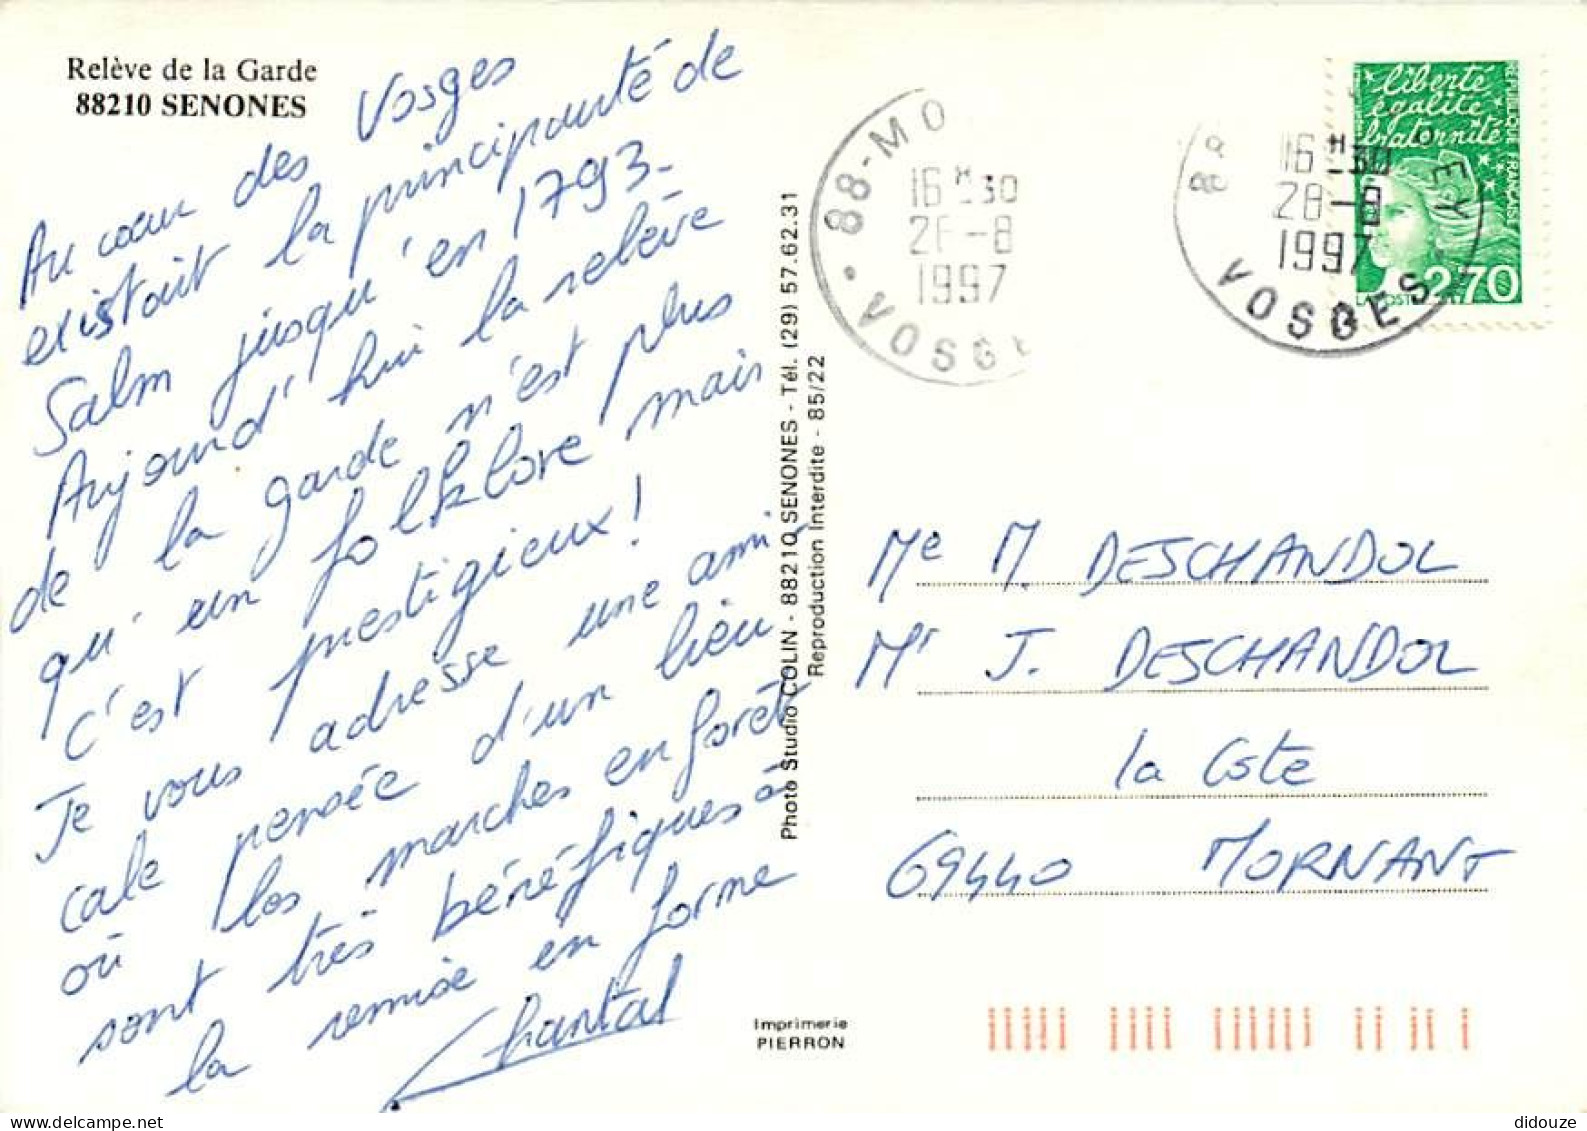 Relève de la Garde
88210 SENONES
Au cœur des Vosges
existait la principauté de
Salm jusqu'en 1793.
Aujourd'hui la relève
de la garde n'est plus
qu'un folklore mais
c'est prestigieux!
Je vous adresse une ami-
cale pensée d'un lieu
où les marches en forêt
sont très bénéfiques à
la remise en forme
Chantal
Photo Studio COLIN - 88210 SENONES - Tél. (29) 57.62.31
Reproduction Interdite - 85/22
Imprimerie
PIERRON
88-MO
16 H 30
1997
VOSGE
16 H 30
28-8
1997
VOSGES
liberté
égalité
fraternité
REPUBLIQUE FRANÇAISE
2,70
LA POSTE
Me M. DESCHANDOL
Mr J. DESCHANDOL
la Coste
69440 MORNANT
didouze